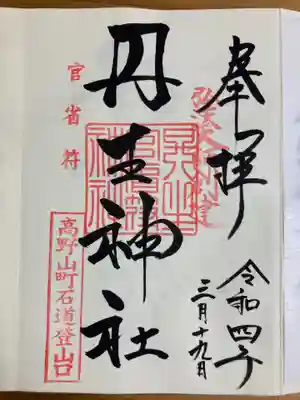 奉拝
令和四年
三月十九日
丹生神社
官省符
高野山町石道登山口